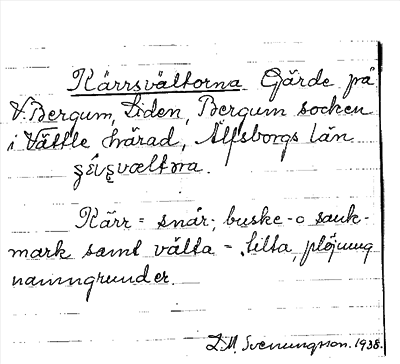 Kärrsvältorna Gärde på
V. Bergum, Liden, Bergum socken
i Vättle härad, Älfsborgs län

Kärr = snår-, buske- o sank-
mark samt välta - tilta, plöjning
namngrunder.
L.M. Svenungsson. 1938.